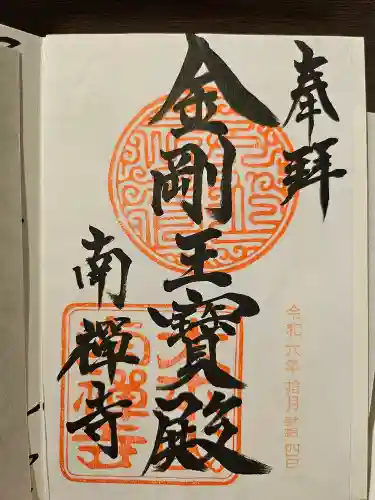 奉拝
令和六年拾月廿四日
金剛王寶殿
南禅寺